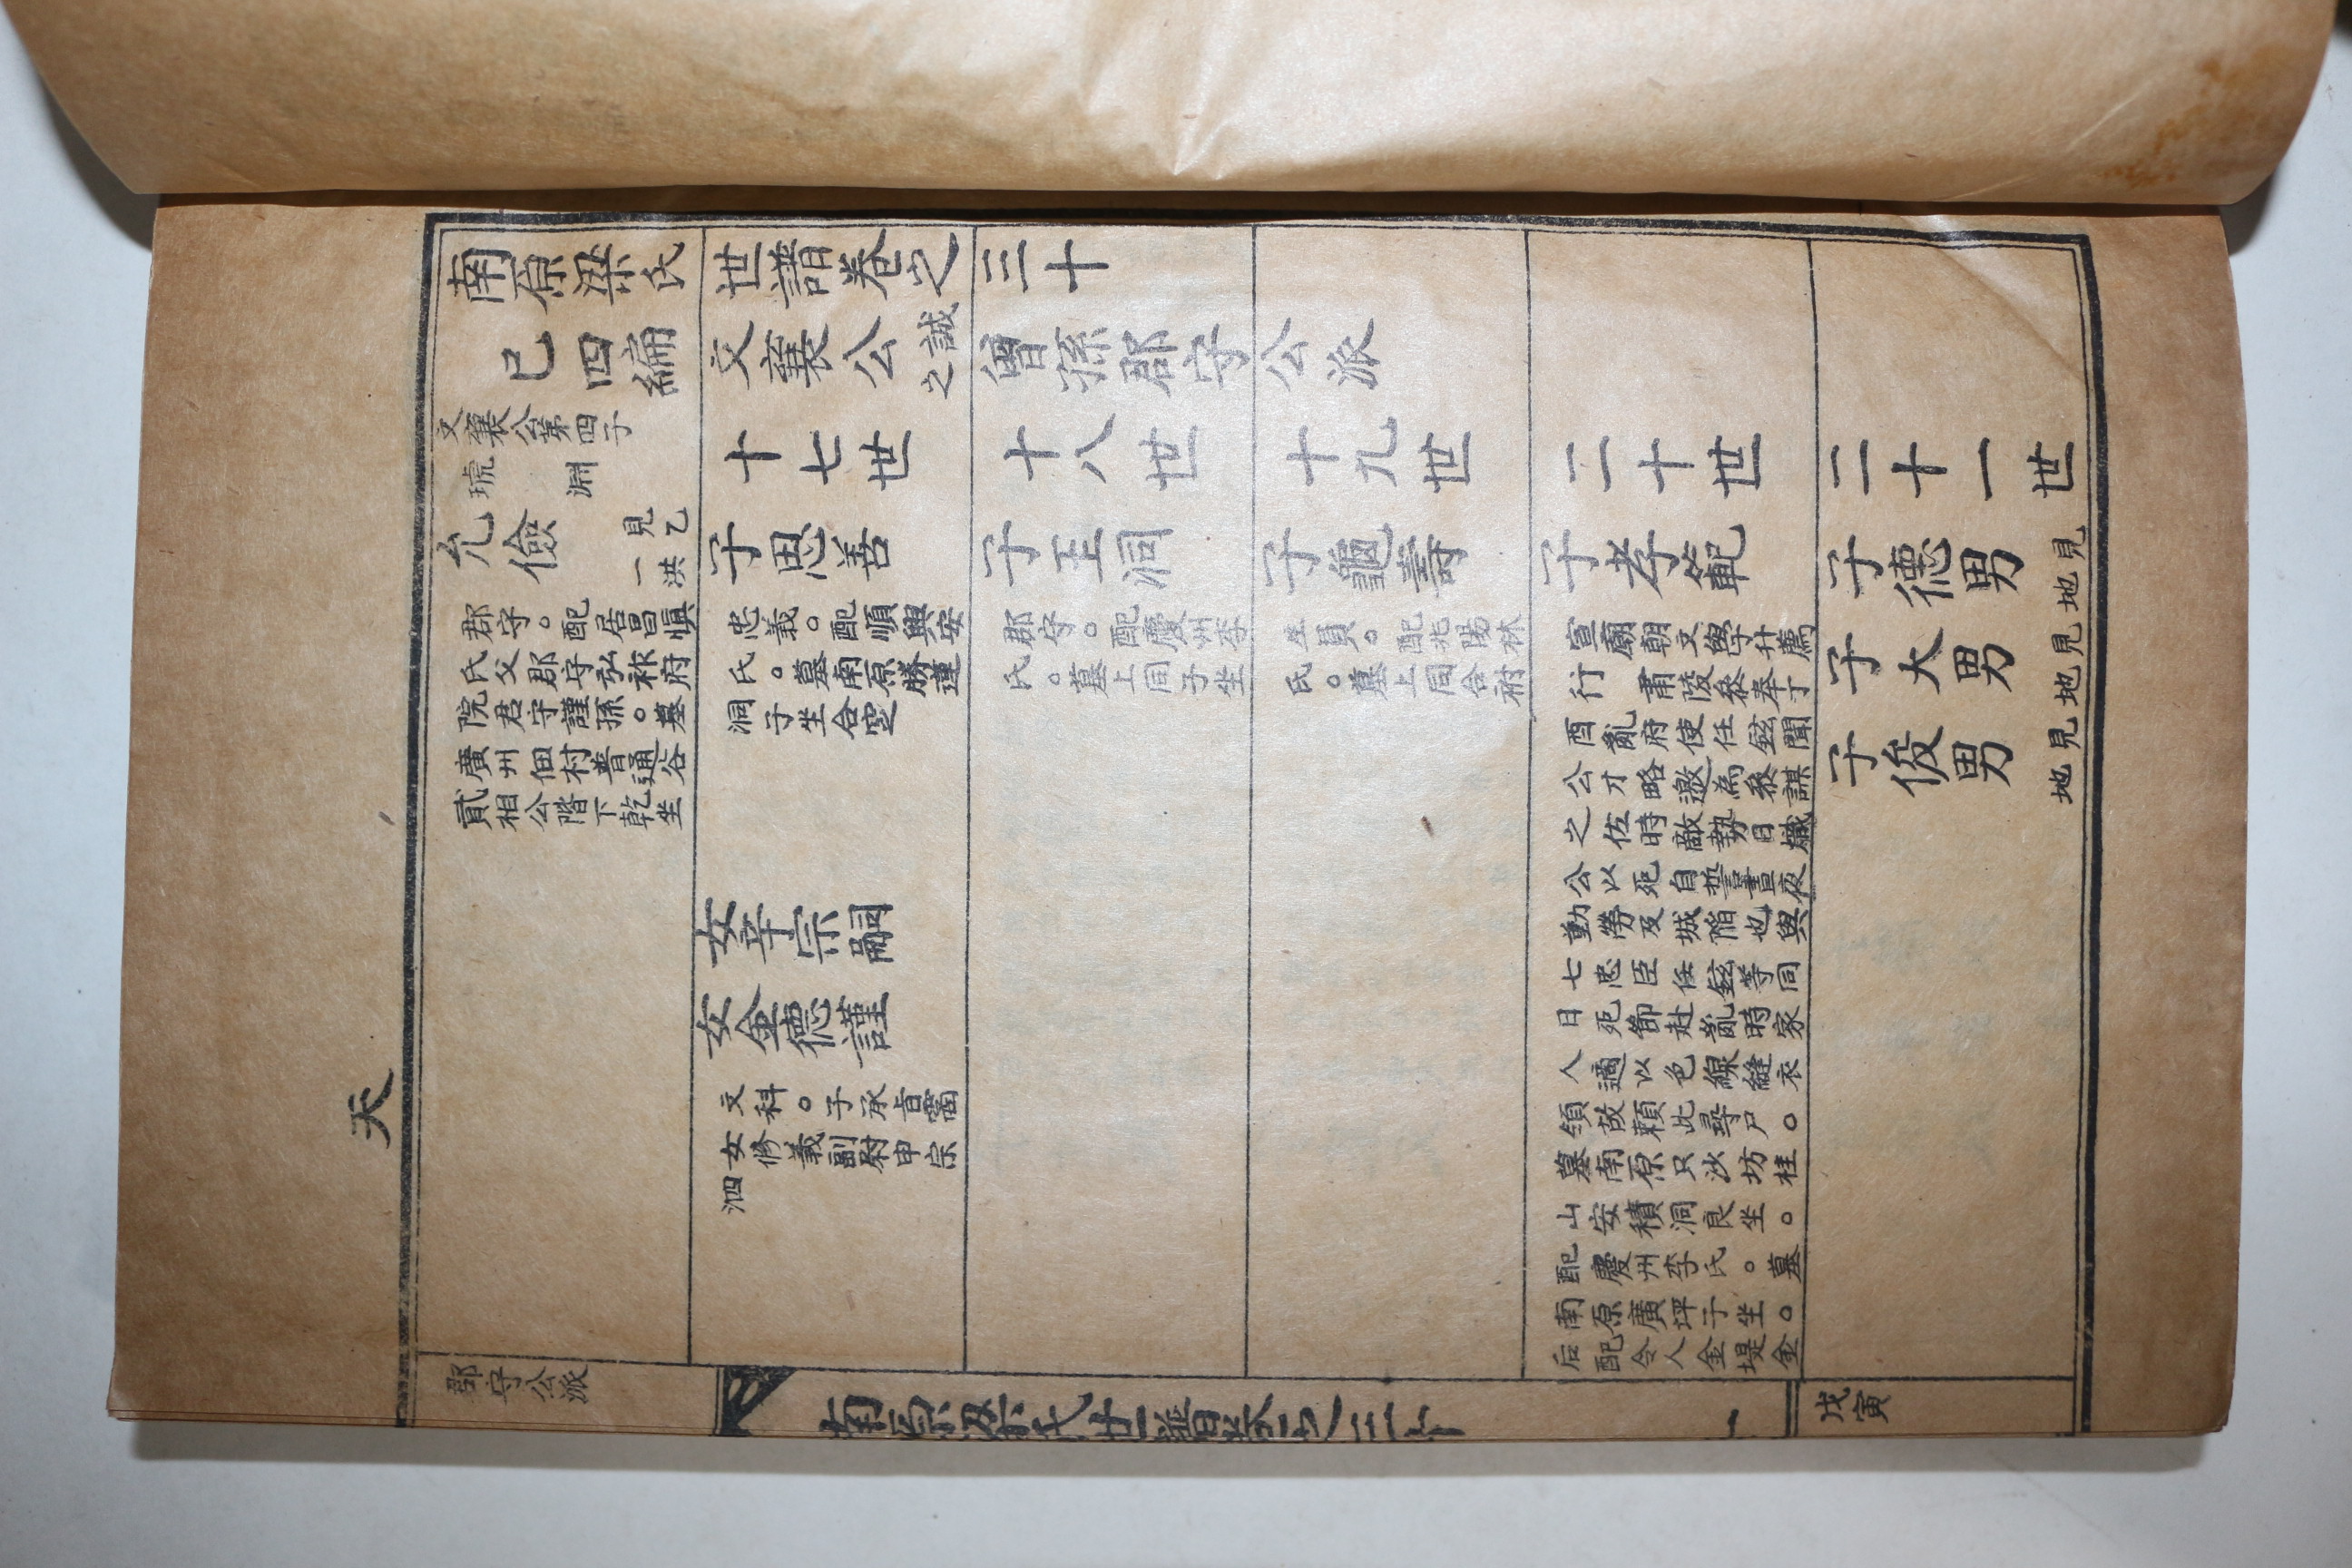 南原梁氏世譜卷之三十
己四編
文襄公誠之曾孫郡守公派
文襄公第四子
琥
淵
十七世
十八世
十九世
二十世
二十一世
允儉
見乙
一洪
郡守。配居昌愼
氏父郡守弘祚府
院君守謹孫。墓
廣州佃村普通谷
貳相公階下乾坐
子思善
忠義。配順興安
氏。墓南原勝蓮
洞子坐合窆
女辛宗嗣
女金德謹
文科。子承旨
女修義副尉申宗
泗
子玉洞
郡守。配慶州李
氏。墓上同子坐
子龜壽
生員。配兆陽林
氏。墓上同合祔
子孝範
宣廟朝文學升薦
行 肅陵參奉丁
酉亂府使任鉉聞
公才略邀為參謀
之佐時敵勢日熾
公以死自誓晝夜
動勞及城陷也與
七忠臣任鉉等同
日死節赴亂時家
人適以色線縫衣
領故賴此尋尸。
墓南原只沙坊桂
山安積洞艮坐。
配慶州李氏。墓
南原廣坪子坐。
后配令人金堤金
子德男
見地
子大男
見地
子俊男
見地
天
郡守公派
南原梁氏世譜卷之三十
一
戊寅